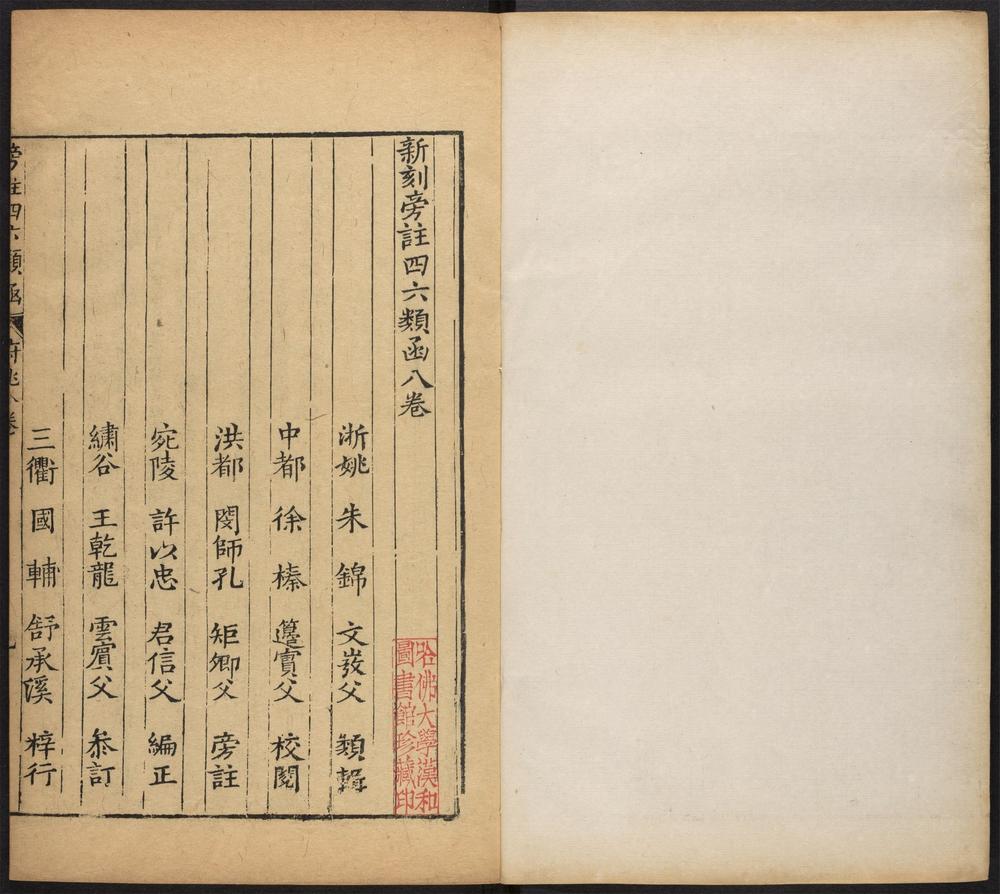 新刻旁註四六類函八卷
浙姚 朱錦 文弢父 類輯
中都 徐榛 籩實父 校閱
洪都 閔師孔 矩卿父 旁註
宛陵 許以忠 君信父 編正
繡谷 王乾龍 雲賓父 叅訂
三衢 國輔 舒承溪 梓行
旁註四六類函
哈佛大學漢和
圖書館珍藏印